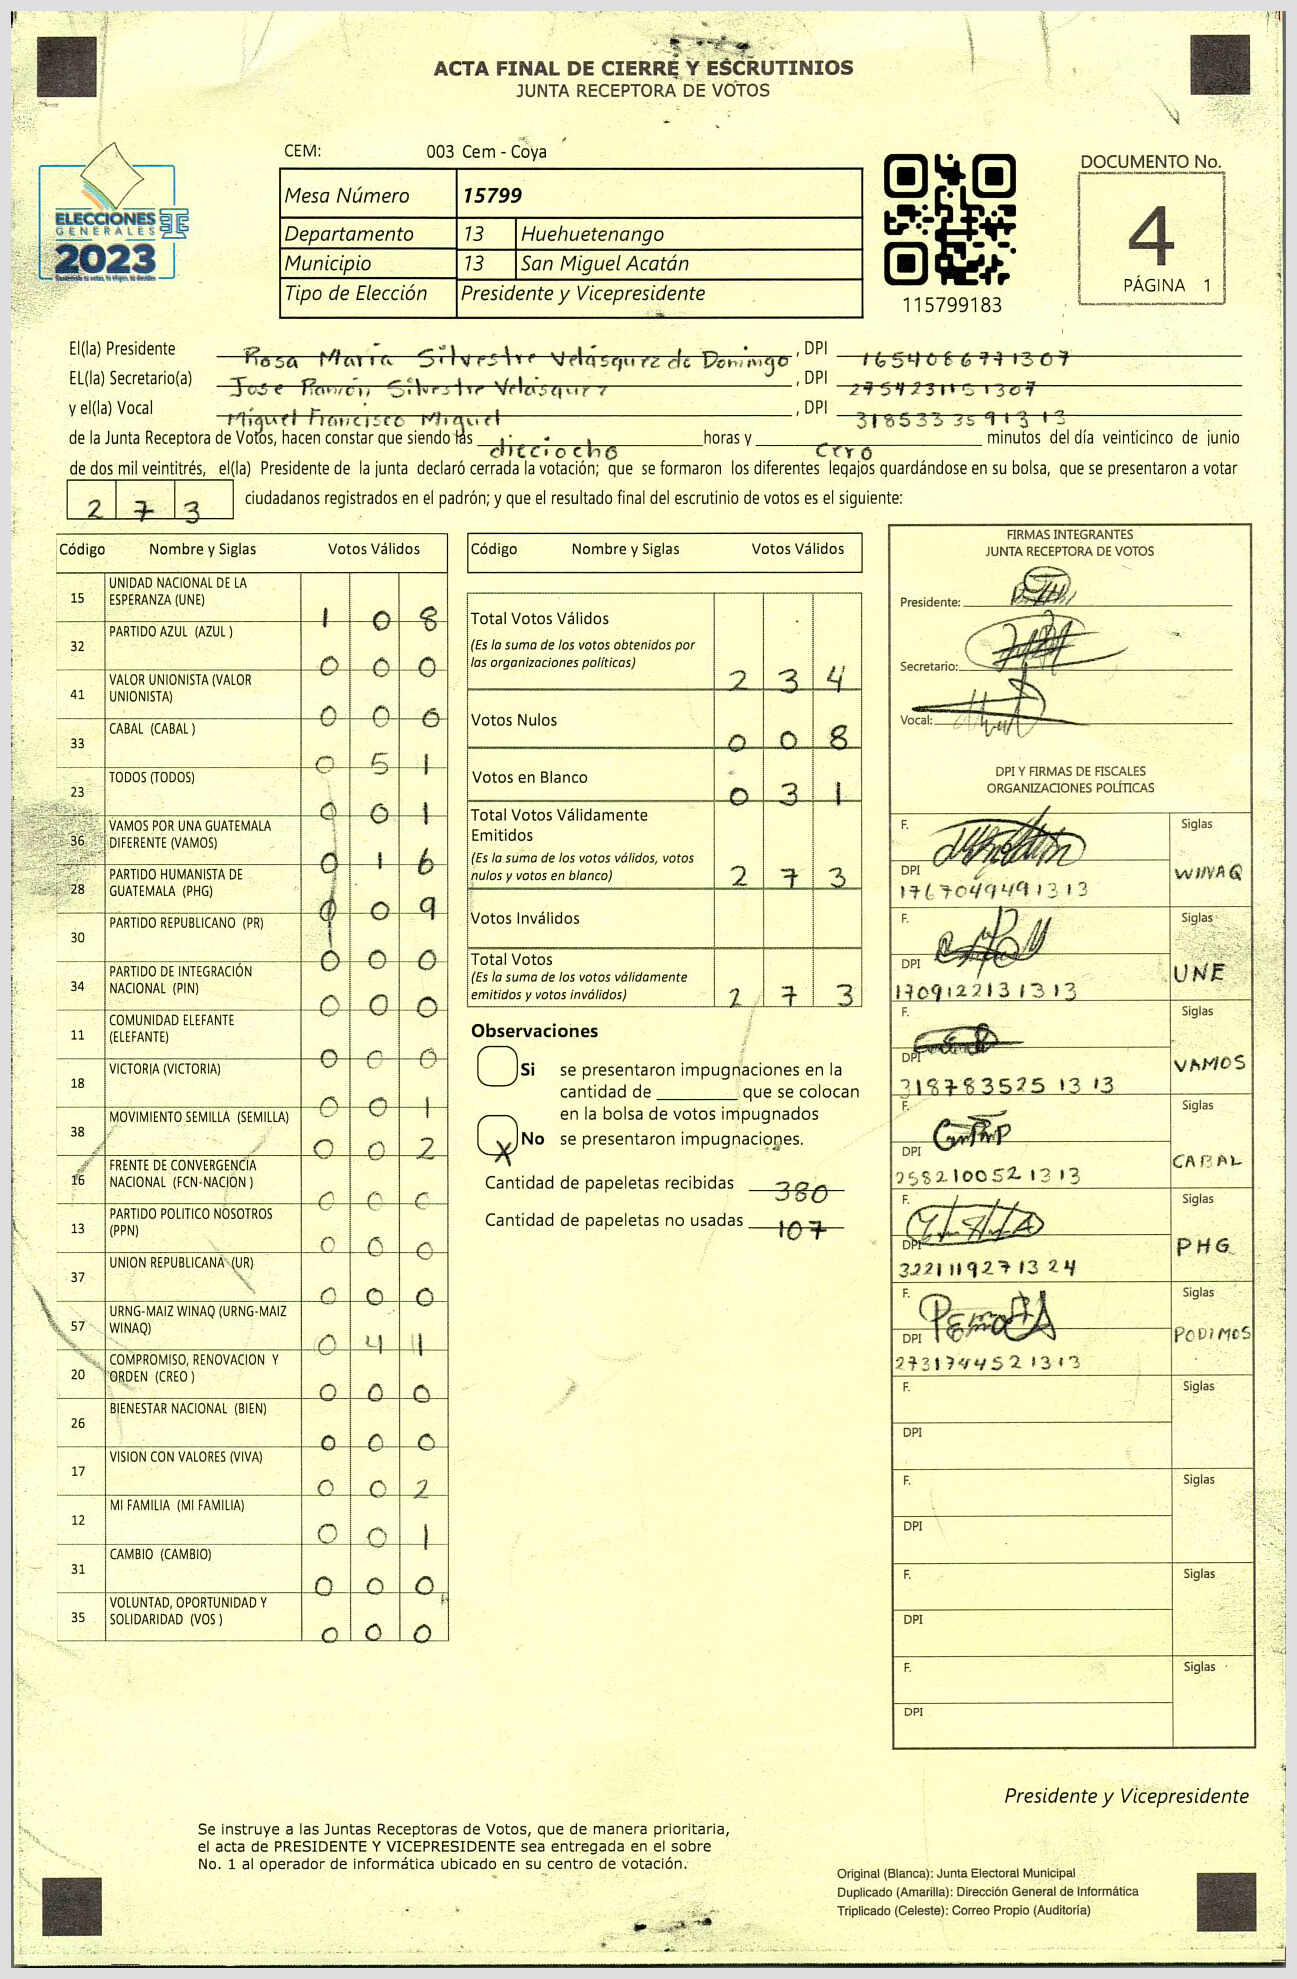 ACTA FINAL DE CIERRE Y ESCRUTINIOS
JUNTA RECEPTORA DE VOTOS
ELECCIONES
GENERALES
2023
CEM: 003 Cem - Coya
Mesa Número 15799
Departamento 13 Huehuetenango
Municipio 13 San Miguel Acatán
Tipo de Elección Presidente y Vicepresidente
115799183
DOCUMENTO No.
4
PÁGINA 1
El(la) Presidente Rosa María Silvestre Velásquez de Domingo, DPI 1654086771307
EL(la) Secretario(a) Jose Ramón Silvestre Velásquez, DPI 2754231151307
y el(la) Vocal Miguel Francisco Miguel, DPI 3185333591313
de la Junta Receptora de Votos, hacen constar que siendo las dieciocho horas y cero minutos del día veinticinco de junio
de dos mil veintitrés, el(la) Presidente de la junta declaró cerrada la votación; que se formaron los diferentes legajos guardándose en su bolsa, que se presentaron a votar
273 ciudadanos registrados en el padrón; y que el resultado final del escrutinio de votos es el siguiente:
Código Nombre y Siglas Votos Válidos
15 UNIDAD NACIONAL DE LA
ESPERANZA (UNE) 1 0 8
32 PARTIDO AZUL (AZUL ) 0 0 0
41 VALOR UNIONISTA (VALOR
UNIONISTA) 0 0 0
33 CABAL (CABAL ) 0 5 1
23 TODOS (TODOS) 0 0 1
36 VAMOS POR UNA GUATEMALA
DIFERENTE (VAMOS) 0 1 6
28 PARTIDO HUMANISTA DE
GUATEMALA (PHG) 0 0 9
30 PARTIDO REPUBLICANO (PR) 0 0 0
34 PARTIDO DE INTEGRACIÓN
NACIONAL (PIN) 0 0 0
11 COMUNIDAD ELEFANTE
(ELEFANTE) 0 0 0
18 VICTORIA (VICTORIA) 0 0 1
38 MOVIMIENTO SEMILLA (SEMILLA) 0 0 2
16 FRENTE DE CONVERGENCIA
NACIONAL (FCN-NACIÓN ) 0 0 0
13 PARTIDO POLITICO NOSOTROS
(PPN) 0 0 0
37 UNION REPUBLICANA (UR) 0 0 0
57 URNG-MAIZ WINAQ (URNG-MAIZ
WINAQ) 0 4 1
20 COMPROMISO, RENOVACION Y
ORDEN (CREO ) 0 0 0
26 BIENESTAR NACIONAL (BIEN) 0 0 0
17 VISION CON VALORES (VIVA) 0 0 2
12 MI FAMILIA (MI FAMILIA) 0 0 1
31 CAMBIO (CAMBIO) 0 0 0
35 VOLUNTAD, OPORTUNIDAD Y
SOLIDARIDAD (VOS ) 0 0 0
Código Nombre y Siglas Votos Válidos
Total Votos Válidos
(Es la suma de los votos obtenidos por
las organizaciones políticas) 2 3 4
Votos Nulos 0 0 8
Votos en Blanco 0 3 1
Total Votos Válidamente
Emitidos
(Es la suma de los votos válidos, votos
nulos y votos en blanco) 2 7 3
Votos Inválidos
Total Votos
(Es la suma de los votos válidamente
emitidos y votos inválidos) 2 7 3
Observaciones
Si se presentaron impugnaciones en la
cantidad de ________ que se colocan
en la bolsa de votos impugnados
X No se presentaron impugnaciones.
Cantidad de papeletas recibidas 380
Cantidad de papeletas no usadas 107
FIRMAS INTEGRANTES
JUNTA RECEPTORA DE VOTOS
Presidente:
Secretario:
Vocal:
DPI Y FIRMAS DE FISCALES
ORGANIZACIONES POLÍTICAS
F. Siglas
DPI WINAQ
1767049491313
F. Siglas
DPI UNE
1709122131313
F. Siglas
DPI VAMOS
3187835251313
F. Siglas
DPI CABAL
2582100521313
F. Siglas
DPI PHG
3221119271324
F. Siglas
DPI PODIMOS
2731744521313
F. Siglas
DPI
F. Siglas
DPI
F. Siglas
DPI
F. Siglas
DPI
Presidente y Vicepresidente
Se instruye a las Juntas Receptoras de Votos, que de manera prioritaria,
el acta de PRESIDENTE Y VICEPRESIDENTE sea entregada en el sobre
No. 1 al operador de informática ubicado en su centro de votación.
Original (Blanca): Junta Electoral Municipal
Duplicado (Amarilla): Dirección General de Informática
Triplicado (Celeste): Correo Propio (Auditoría)